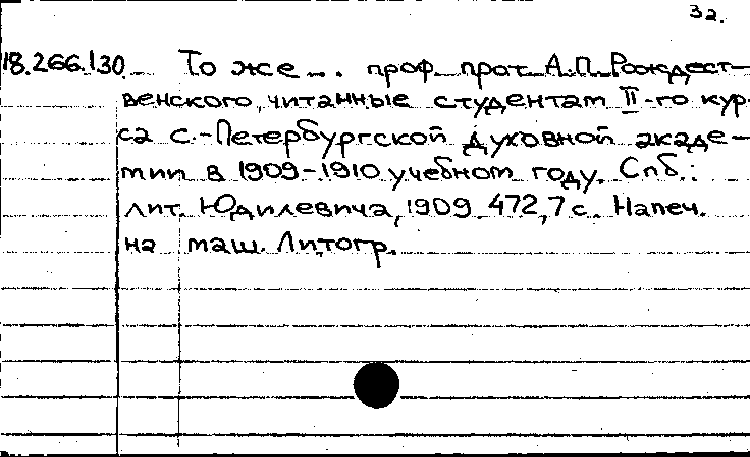 32.
18.266.130 То же... проф. прот. А.П. Рождест-
венского, читанные студентам II-го кур-
са С.-Петербургской духовной акаде-
мии в 1909-1910 учебном году. Спб.:
лит. Юдилевича, 1909. 472,7 с. Напеч.
на маш. Литогр.